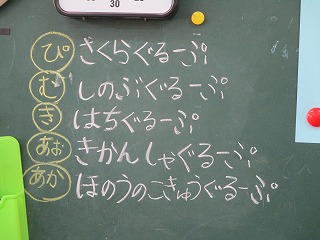 30
ぴ さくらぐるーぷ
む しのぶぐるーぷ
き はちぐるーぷ
あお きかんしゃぐるーぷ
あか ほのうのこきゅうぐるーぷ